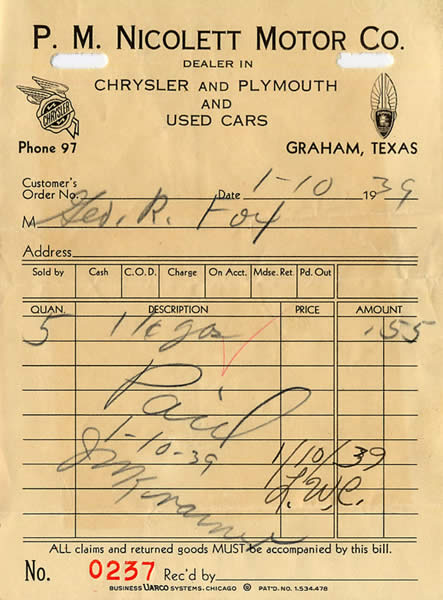 P. M. NICOLETT MOTOR CO.
DEALER IN
CHRYSLER AND PLYMOUTH
AND
USED CARS
CHRYSLER
Phone 97 GRAHAM, TEXAS
Customer's
Order No. Date 1-10 1939
M Geo. R. Fox
Address
Sold by Cash C.O.D. Charge On Acct. Mdse. Ret. Pd. Out
QUAN. DESCRIPTION PRICE AMOUNT
5 gas .55
Paid
1-10-39 1/10/39
L.W.C.
ALL claims and returned goods MUST be accompanied by this bill.
No. 0237 Rec'd by
BUSINESS UARCO SYSTEMS, CHICAGO PAT'D. NO. 1.534.478